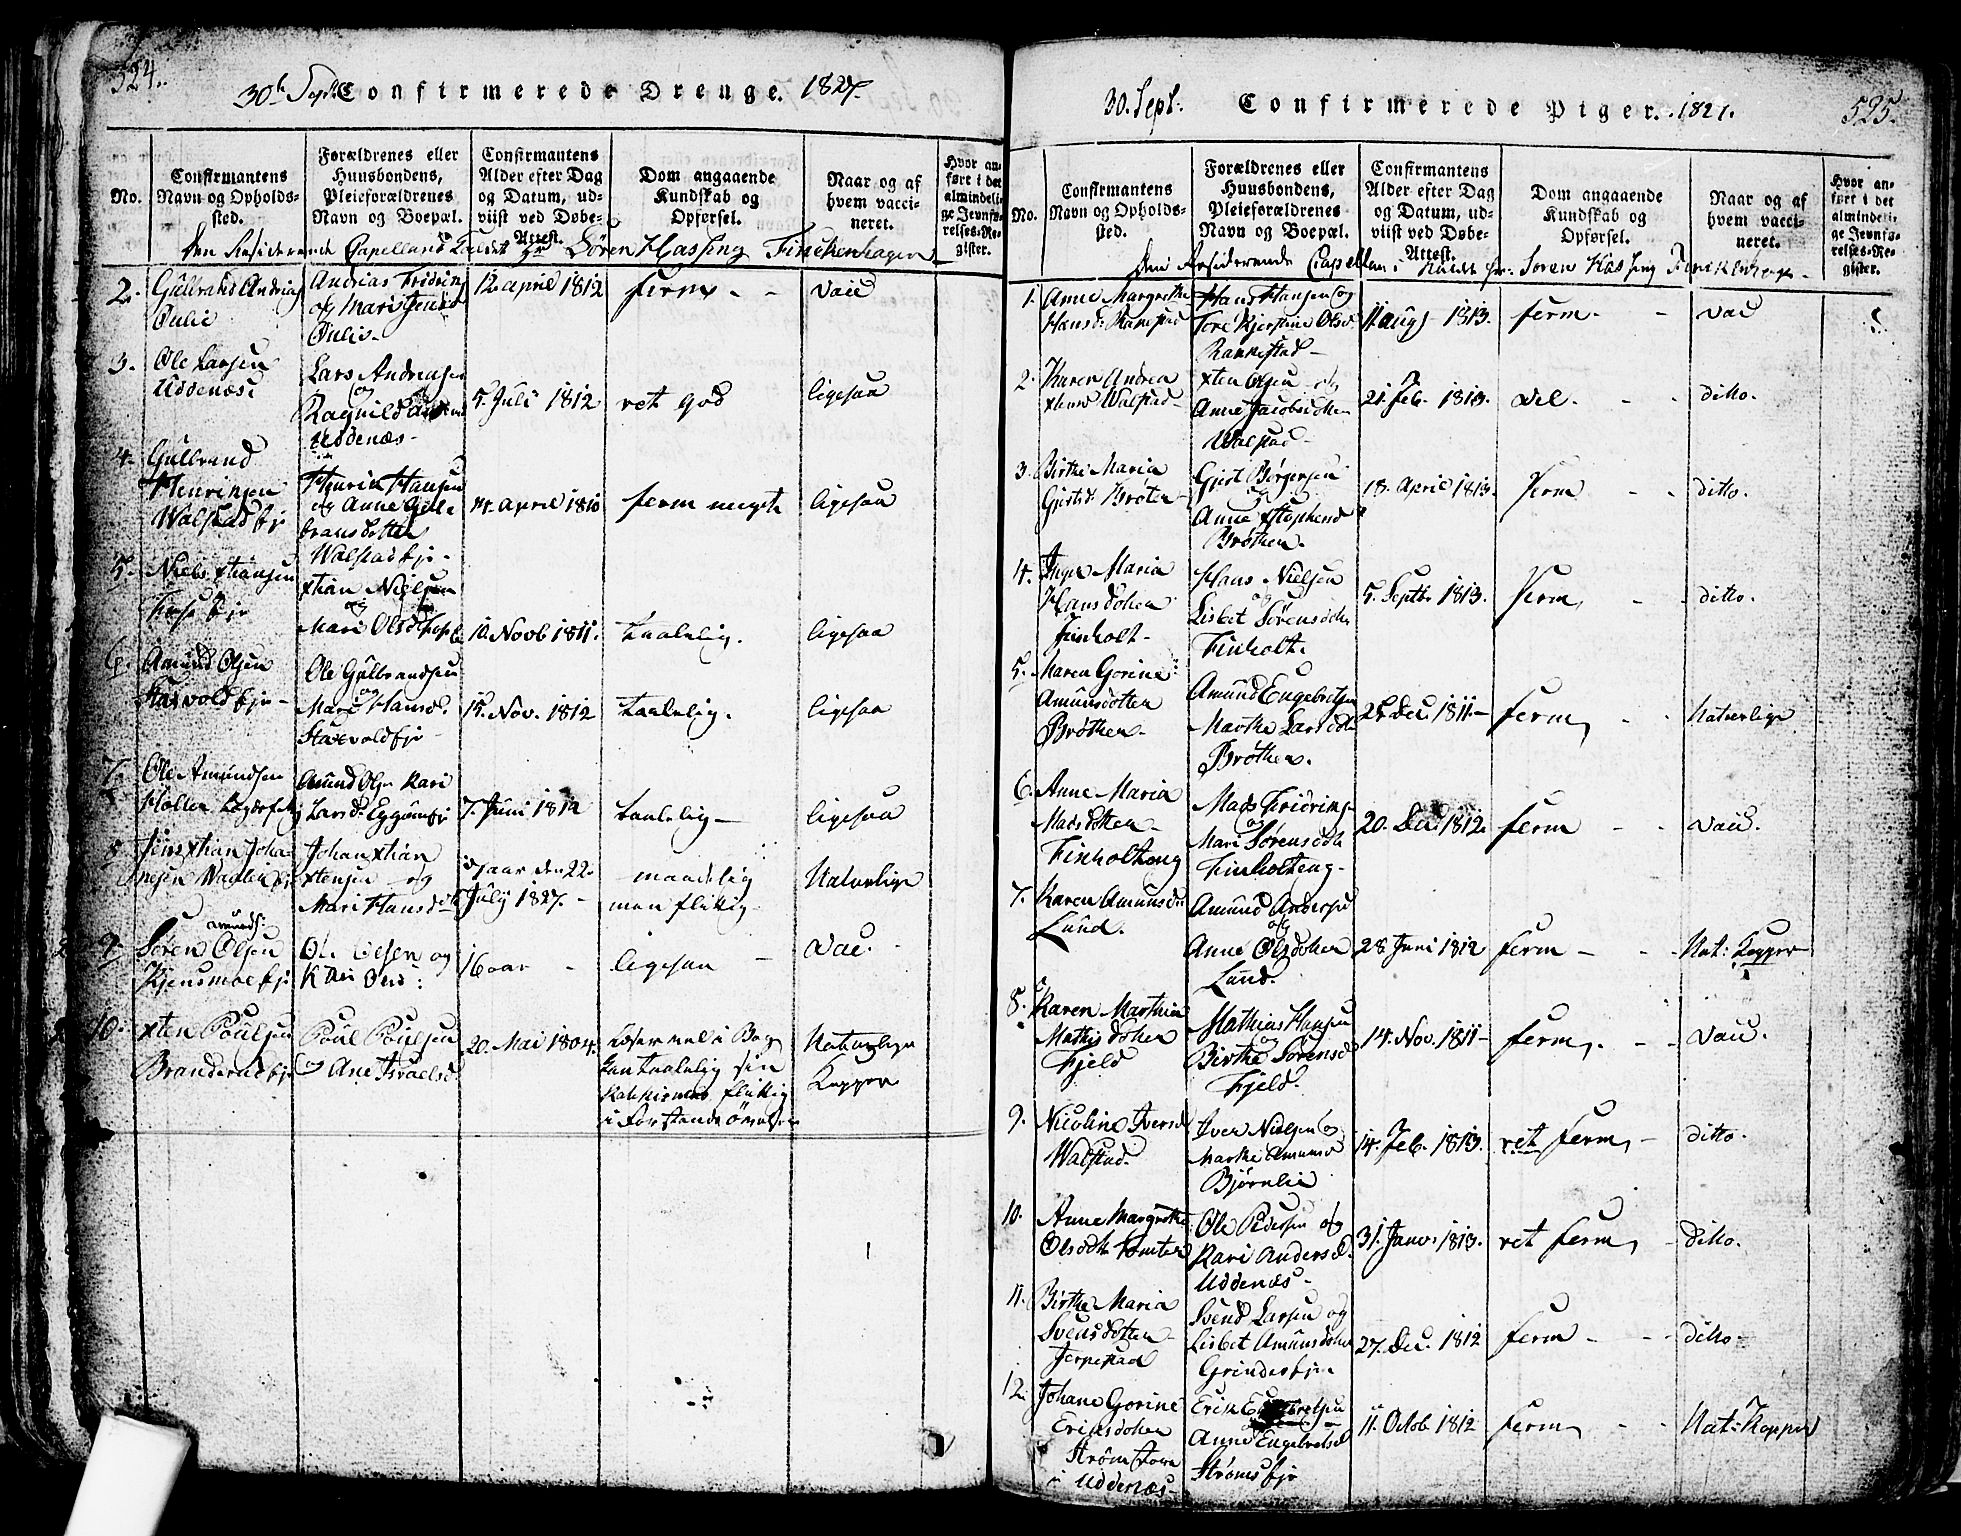 524.
30te Sept. Confirmerede Drenge. 1827.
No.
Confirmantens
Navn og Opholds-
sted.
Forældrenes eller
Huusbondens,
Pleieforældrenes
Navn og Boepæl.
Confirmantens
Alder efter Dag
og Datum, ud-
viist ved Døbe-
Attest.
Dom angaaende
Kundskab og
Opførsel.
Naar og af
hvem vacci-
neret.
Hvor an-
ført i det
almindeli-
ge Jevnfø-
relses-Re-
gister.
Den Residerende Capellan Søren Hassing Finckenhagen
2.
Gulbrand
Andrias
og Mari
12 april 1812
ferm - -
vacc
3.
Ole Larsen
Uddenæsi
Lars Andersen
og
Ragnild
Uddenæs-
5. Juli 1812
ret god
ligesaa
4.
Gulbrand
Henriksen
Walstadeje
Henrik Hansen
og Anne Gul-
bransdotter
Walstadeje-
april 1810
ferm meget
ligesaa
5.
Niels
xtian Nielsen
og
Mari Olsd
10. Novb 1811.
taalelig.
ligesaa
6.
Amund Olsen
Ole Gulbrandsen
og
Mari Hansd.
15. Nov. 1812
taalelig.
ligesaa
7.
Ole Amundsen
Amund Olsen Kari
Larsd.
7. Juni 1812
taalelig -
ligesaa
8.
Jens xtian Joha-
nesen
Johan xtian
xtensen og
Mari Hansd
aar den 22
July 1827. -
maadelig
men flittig
Naturlige
amunds:
9.
Søren Olsen
Kjensmoeeje
Ole Olsen og
16 aar -
ligesaa -
vac. -
10.
xten Poulsen
Branderudeje
Poul Poulsen
og Ane Israelsd
20. Mai 1804.
Læser vel i Bog
kan taalelig sin
flittig
i
Naturlige
Kopper
30. Sept. Confirmerede Piger. 1827. 525.
No.
Confirmantens
Navn og Opholds-
sted.
Forældrenes eller
Huusbondens,
Pleieforældrenes
Navn og Boepæl.
Confirmantens
Alder efter Dag
og Datum, ud-
viist ved Døbe-
Attest.
Dom angaaende
Kundskab og
Opførsel.
Naar og af
hvem vacci-
neret.
Hvor an-
ført i det
almindeli-
ge Jevnfø-
relses-Re-
gister.
Den Residerende Capellan i Søren Hassing Finckenhagen
1.
Anne Margrethe
Hansd:
Hans Hansen og
Tore Kjerstine Olsd
Rakkestad-
11 aug 1813.
ferm. -
vac
2.
Karen Andrea
xtensd Walstad-
xten Olsen og
Anne Jacobsdotter
Walstad-
21. Feb. 1813.
vel. - -
ditto.
3.
Birthe Maria
Brøten-
Børgersen
og
Anne
Brøthen.
18. April 1813.
Ferm - -
ditto.
4.
Inger Maria
Hansdotter
Finholt-
Hans Nielsen
og
Lisbet Sørensdotter
Finholt.
5. Septbr 1813.
Ferm, -
ditto.
5.
Maren Gorine
Amunsdotter
Brøthen-
Amund Engebretsen
Marthe Larsdotter
Brøthen.
25. Dec. 1811-
ferm, - -
Naturlige
6.
Anne Maria
Madsdotter-
Finholteng
Mads Fridrics
og
Mari Sørensdotter
Finholteng-
20. Dec. 1812.
ferm - -
vacc.
7.
Karen Amunsd
Lund.
Amund Andersen
og
Anne Olsdotter
Lund.
28 Juni 1812
ferm - -
Nat: Kopper
8.
Karen Marthia
Mathisdotter
Fjeld
Mathias Hansen
og
Birthe Sørensd
Fjeld.
14. Nov. 1811-
ferm. - -
vacc.
9.
Nicoline Iversd
Walstad.
Iver Nielsen og
Marthe Amunsd
Bjørnlie
14. Feb. 1813.
ret ferm, -
ditto.
10.
Anne Margrethe
Olsdtr Tomter
Ole Pedersen og
Kari Andersd.
Uddenæs-
31. Janr 1813.
ret ferm, -
ditto.
11.
Birthe Maria
Svensdotter-
Svend Larsen og
Lisbet Amunsdotter
27. Dec. 1812
ferm - -
ditto-
12.
Johane Gorine
Ericsdotter
i Uddenæs-
Erik Engebretsen
Anne Engebretsd
Strømseje
11. Octob 1812
ferm, - -
Nat: Kopper